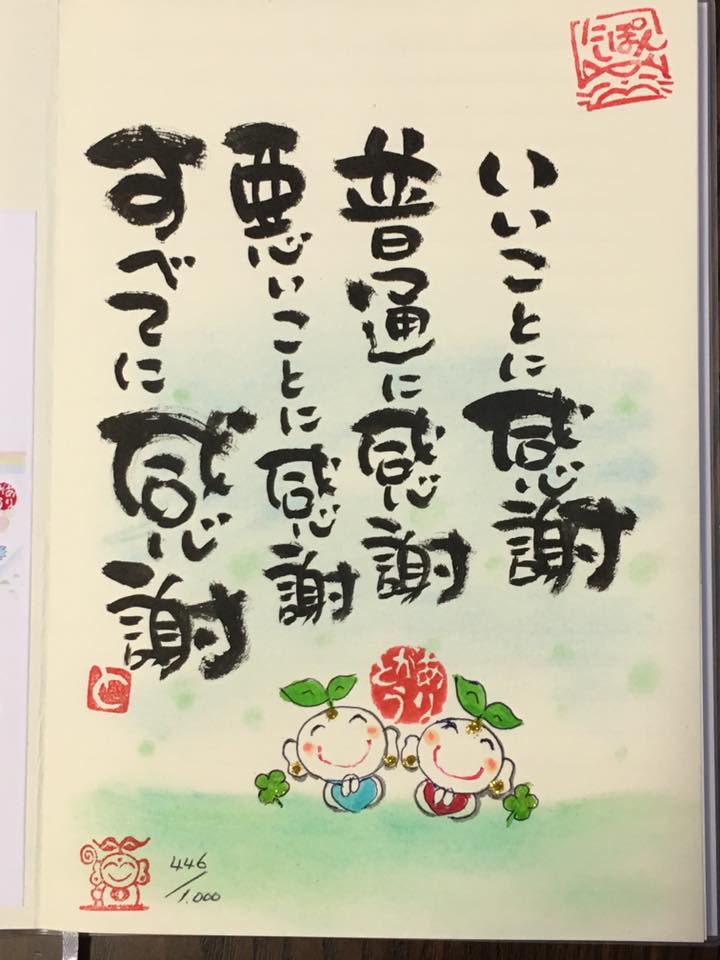 いいことに感謝
普通に感謝
悪いことに感謝
すべてに感謝
にしぽん
ありがとう
446/1.000